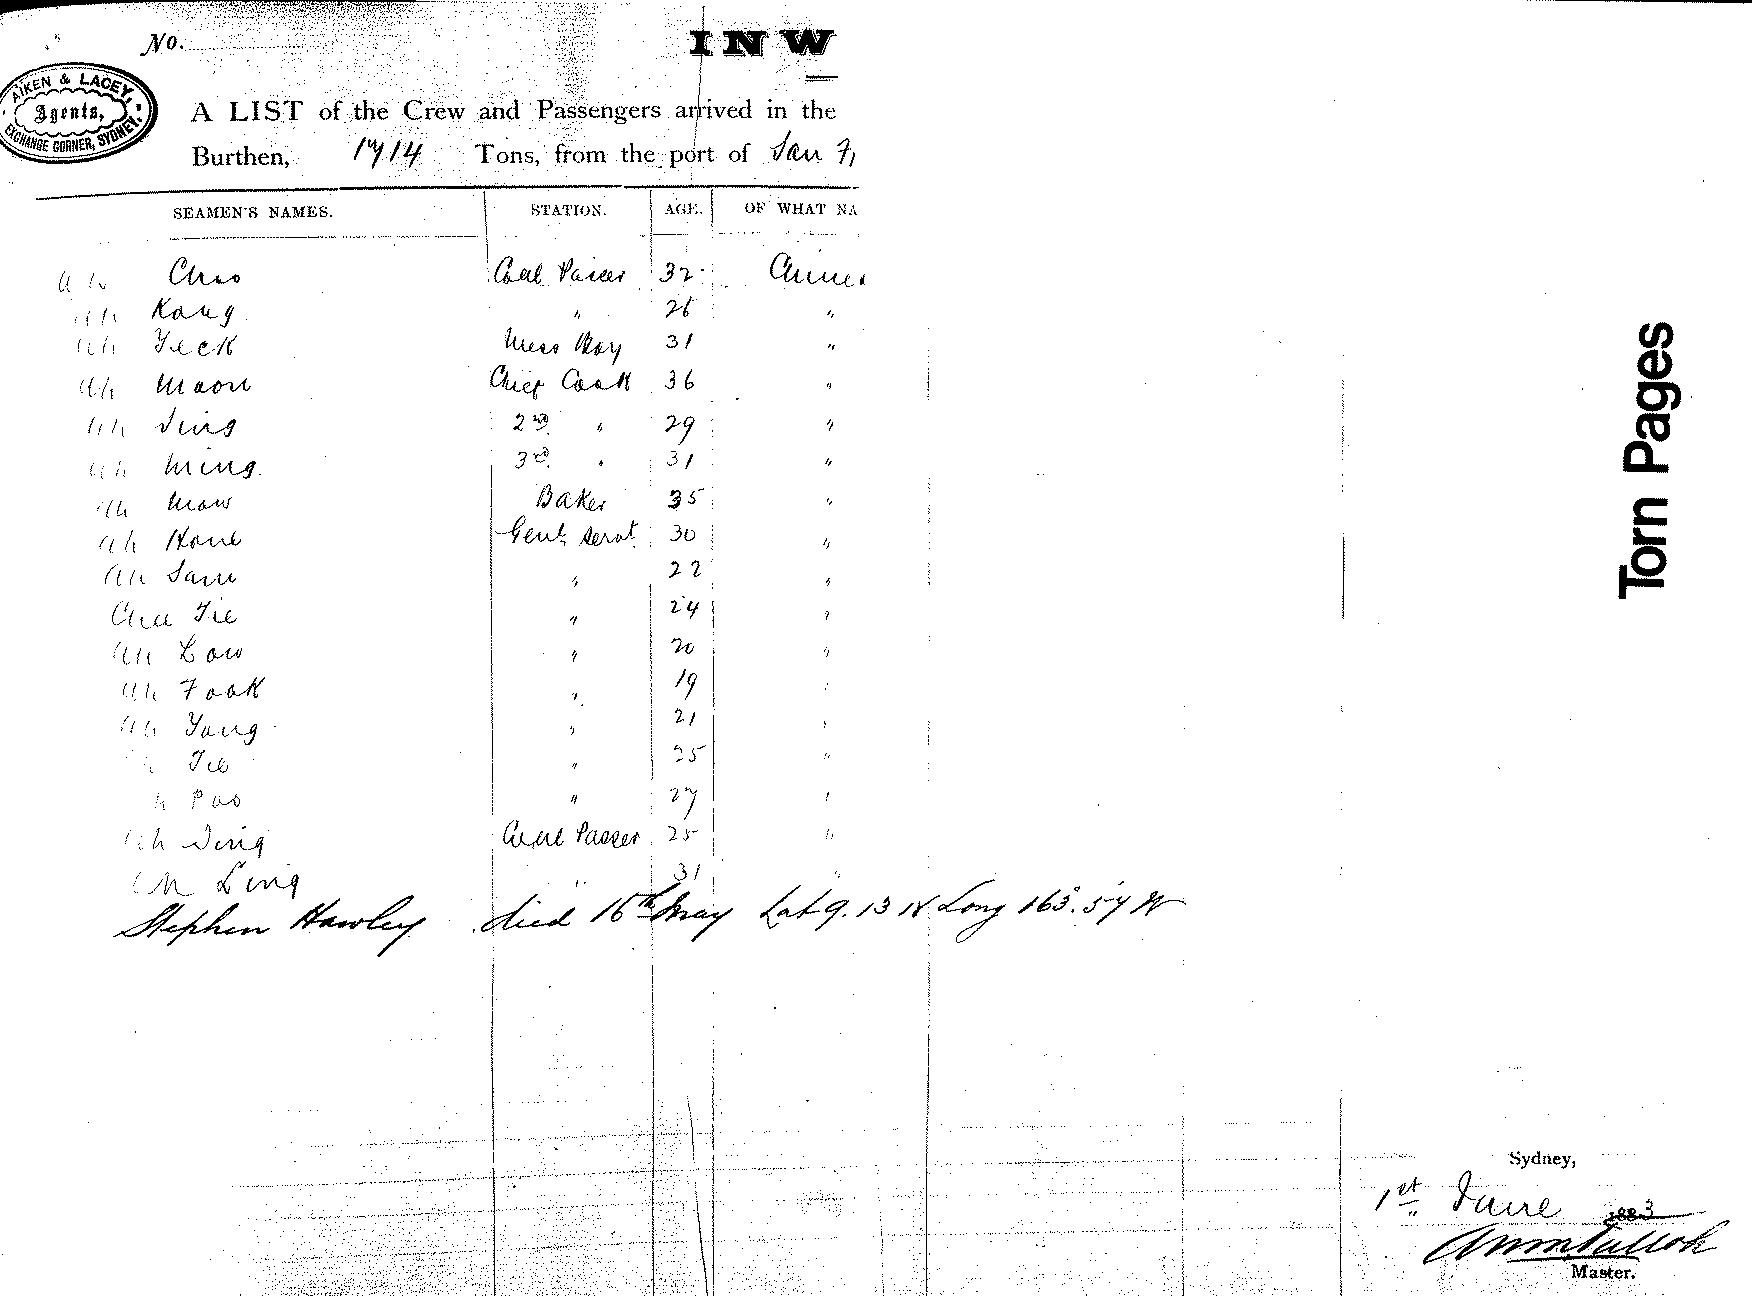 No. INW
AIKEN & LACEY,
Agents,
EXCHANGE CORNER, SYDNEY.
A LIST of the Crew and Passengers arrived in the
Burthen, 1714 Tons, from the port of San F,
SEAMEN'S NAMES. STATION. AGE. OF WHAT NA
Ah Choo Coal Passer 32
Ah Kong " 26 "
Ah Yeck Mess Boy 31 "
Ah Moon Chief Cook 36 "
Ah Sing 2nd " 29 "
Ah Ming 3rd " 31 "
Ah Mow Baker 35 "
Ah Hone Genl. Servt. 30 "
Ah Sam " 22 "
Chu Tie " 24 "
Ah Low " 20 "
Ah Fook " 19 "
Ah Yong " 21 "
Tie " 25 "
h Poo " 27 "
Ah Sing Coal Passer 25 "
Ah Ling " 31 "
Stephen Hawley died 16th May Lat 9.13 N Long 163.57 W
Torn Pages
Sydney,
1st June 1883
Master.